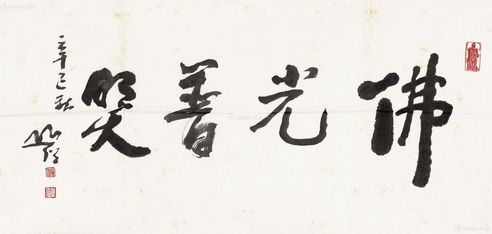 佛光普照
辛巳秋